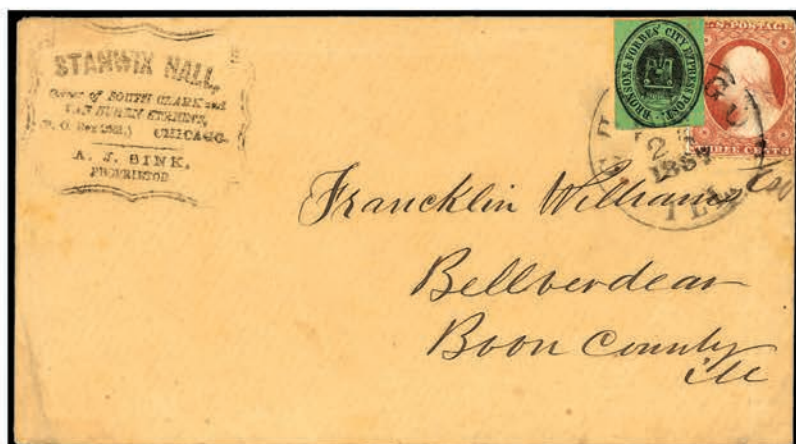 STANWIX HALL,
Corner of SOUTH CLARK and
VAN BUREN STREETS,
(P. O. Box) CHICAGO.
A. J. SINK,
PROPRIETOR
BRONSON & FORBES' CITY EXPRESS POST.
U.S. POSTAGE
THREE CENTS
CHICAGO
2
185
ILL
Francklin Williams
Bellverdear
Boon County
Ill